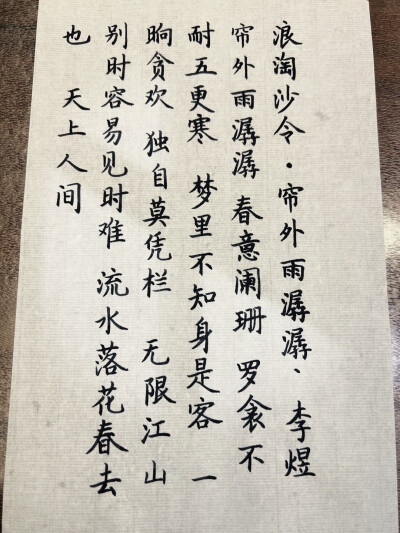 浪淘沙令·帘外雨潺潺、 李煜
帘外雨潺潺 春意阑珊 罗衾不
耐五更寒 梦里不知身是客 一
晌贪欢 独自莫凭栏 无限江山
别时容易见时难 流水落花春去
也 天上人间